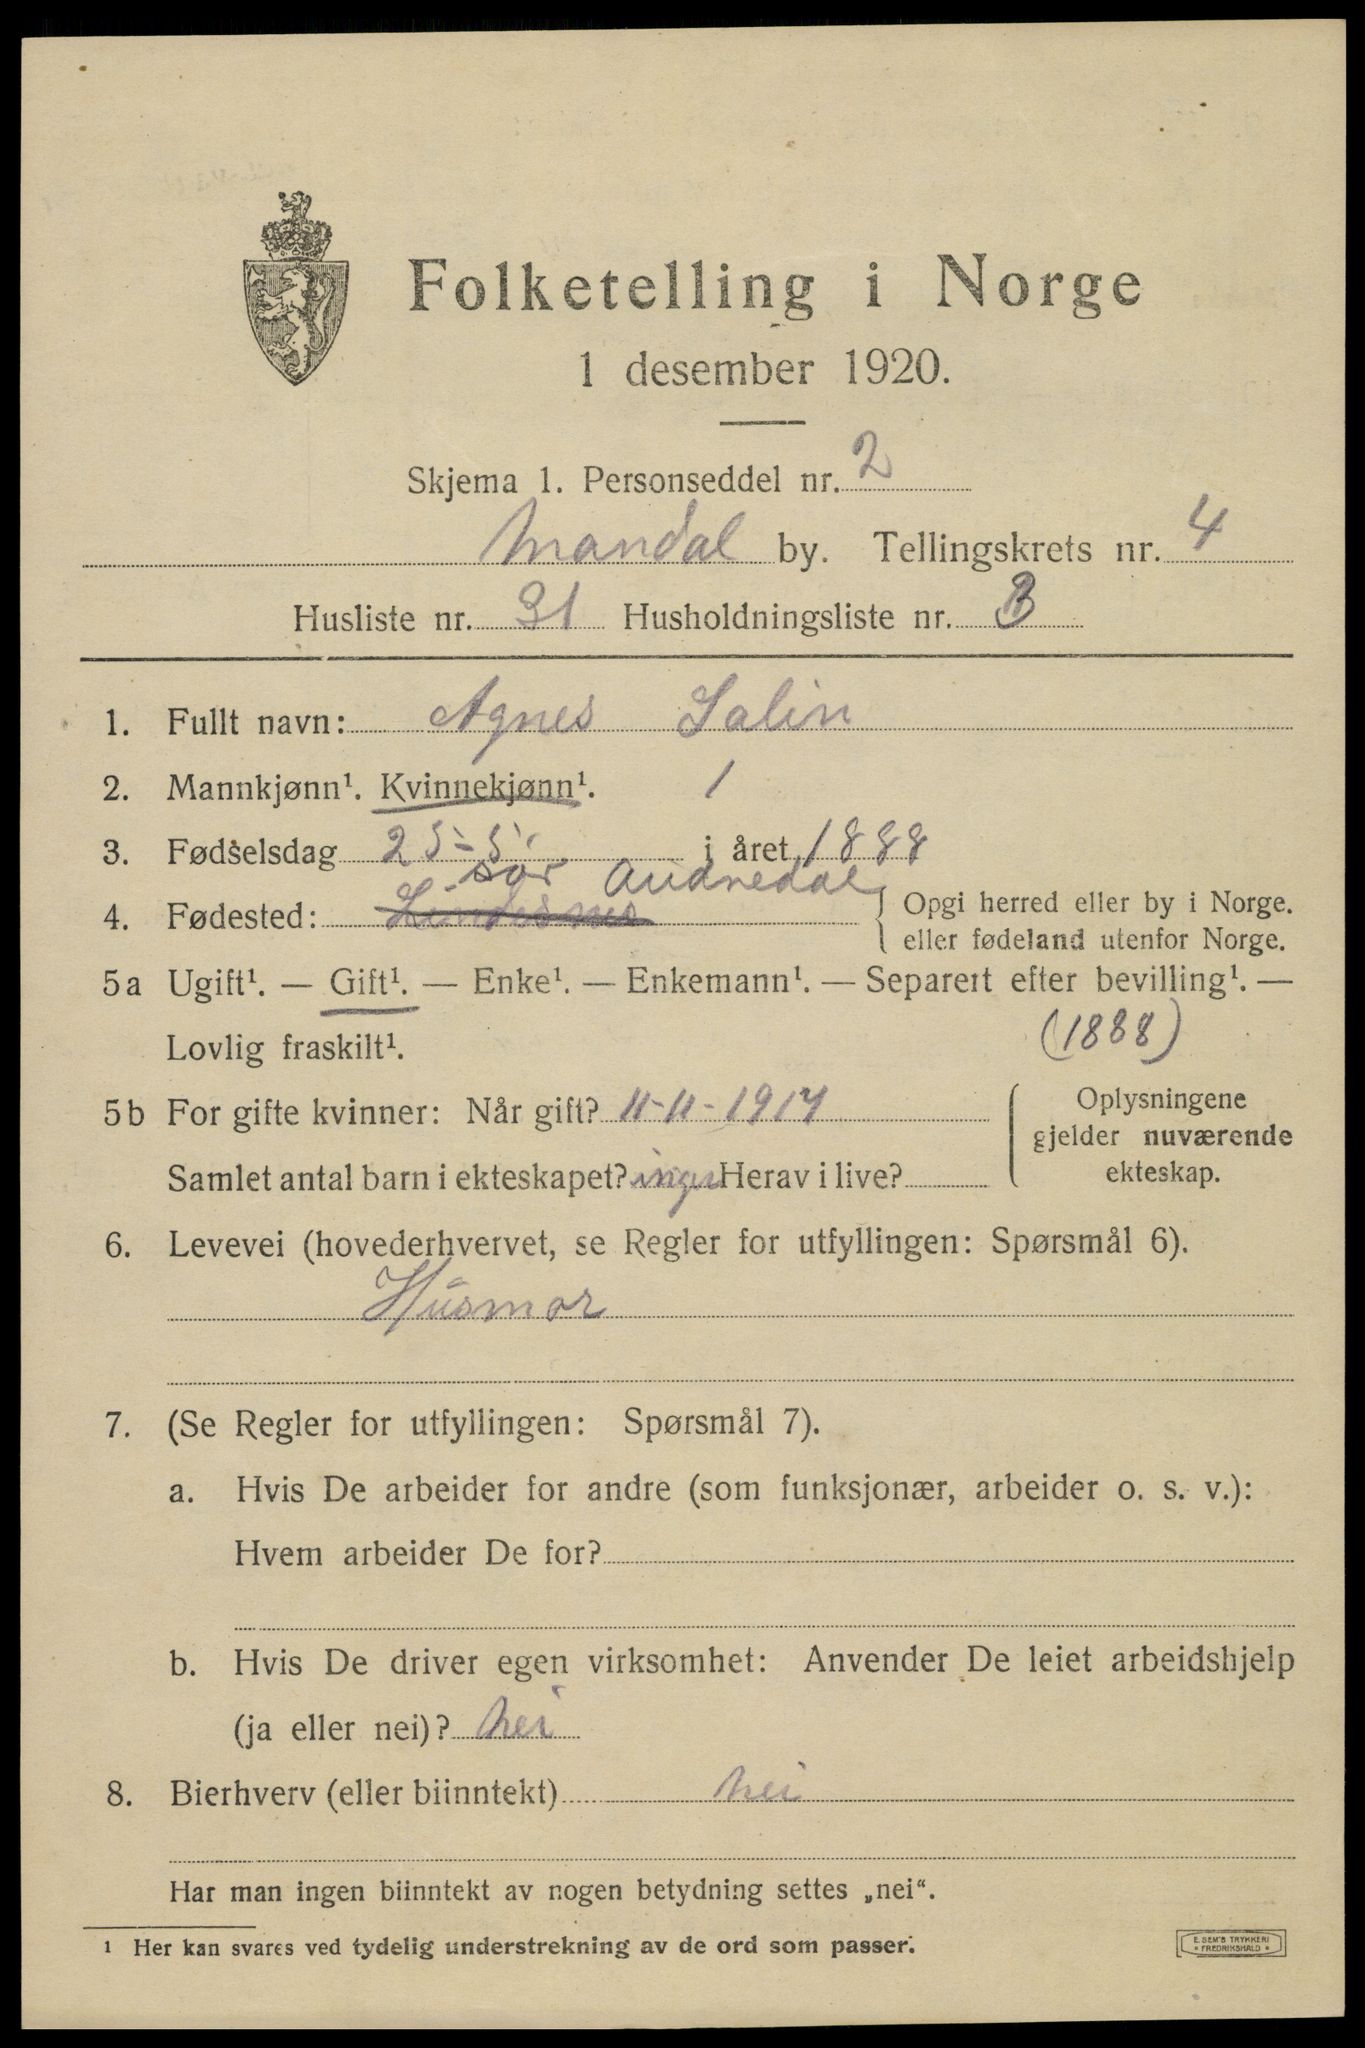 Folketelling i Norge
1 desember 1920.
Skjema 1. Personseddel nr. 2
Mandal by. Tellingskrets nr. 4
Husliste nr. 31 Husholdningsliste nr. 3
1. Fullt navn: Agnes Salin
2. Mannkjønn¹. Kvinnekjønn¹. 1
3. Fødselsdag 25-5. i året 1888
Sør Audnedal
4. Fødested: Lindesnes Opgi herred eller by i Norge.
eller fødeland utenfor Norge.
5a Ugift¹. — Gift¹. — Enke¹. — Enkemann¹. — Separert efter bevilling¹. —
Lovlig fraskilt¹. (1888)
5b For gifte kvinner: Når gift? 11-11-1917 Oplysningene
gjelder nuværende
Samlet antal barn i ekteskapet? ingen Herav i live? ekteskap.
6. Levevei (hovederhvervet, se Regler for utfyllingen: Spørsmål 6).
Husmor
7. (Se Regler for utfyllingen: Spørsmål 7).
a. Hvis De arbeider for andre (som funksjonær, arbeider o. s. v.):
Hvem arbeider De for?
b. Hvis De driver egen virksomhet: Anvender De leiet arbeidshjelp
(ja eller nei)? nei
8. Bierhverv (eller biinntekt) nei
Har man ingen biinntekt av nogen betydning settes „nei“.
¹ Her kan svares ved tydelig understrekning av de ord som passer.
E. SEM'S TRYKKERI
FREDRIKSHALD